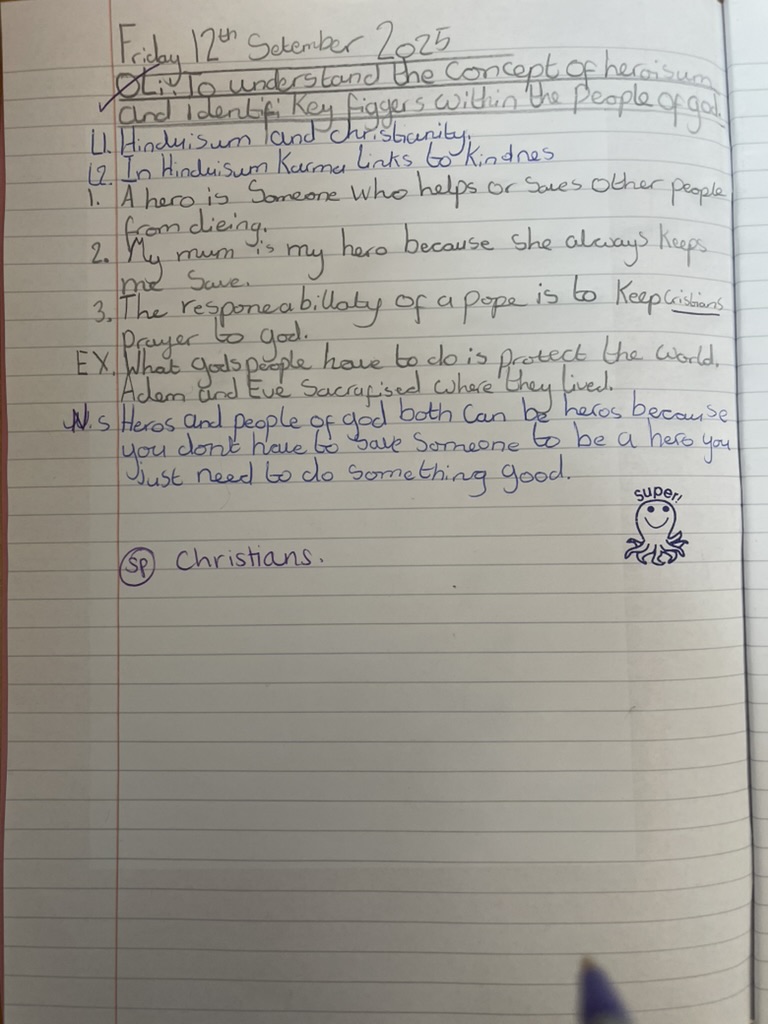 Friday 12th Setember 2025
OLi To understand the concept of heroisum
and identifi key figgers within the people of god.
L1. Hinduisum and christianity.
L2. In Hinduisum Karma links to kindnes
1. A hero is someone who helps or saves other people
from dieing.
2. My mum is my hero because she always keeps
me save.
3. The responeabillaty of a pope is to keep Cristians
prayer to god.
EX. What gods people have to do is protect the world.
Adem and Eve sacrafised where they lived.
N.s Heros and people of god both can be heros because
you dont have to save someone to be a hero you
just need to do something good.
super!
sp Christians.